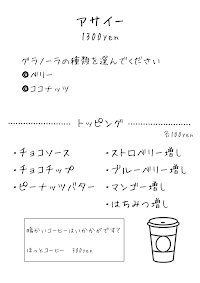 アサイー
1300yen
グラノーラの種類を選んでください
●ベリー
●ココナッツ
トッピング
各100yen
・チョコソース
・チョコチップ
・ピーナッツバター
・ストロベリー増し
・ブルーベリー増し
・マンゴー増し
・はちみつ増し
暖かいコーヒーはいかがですか?
ほっとコーヒー 350yen